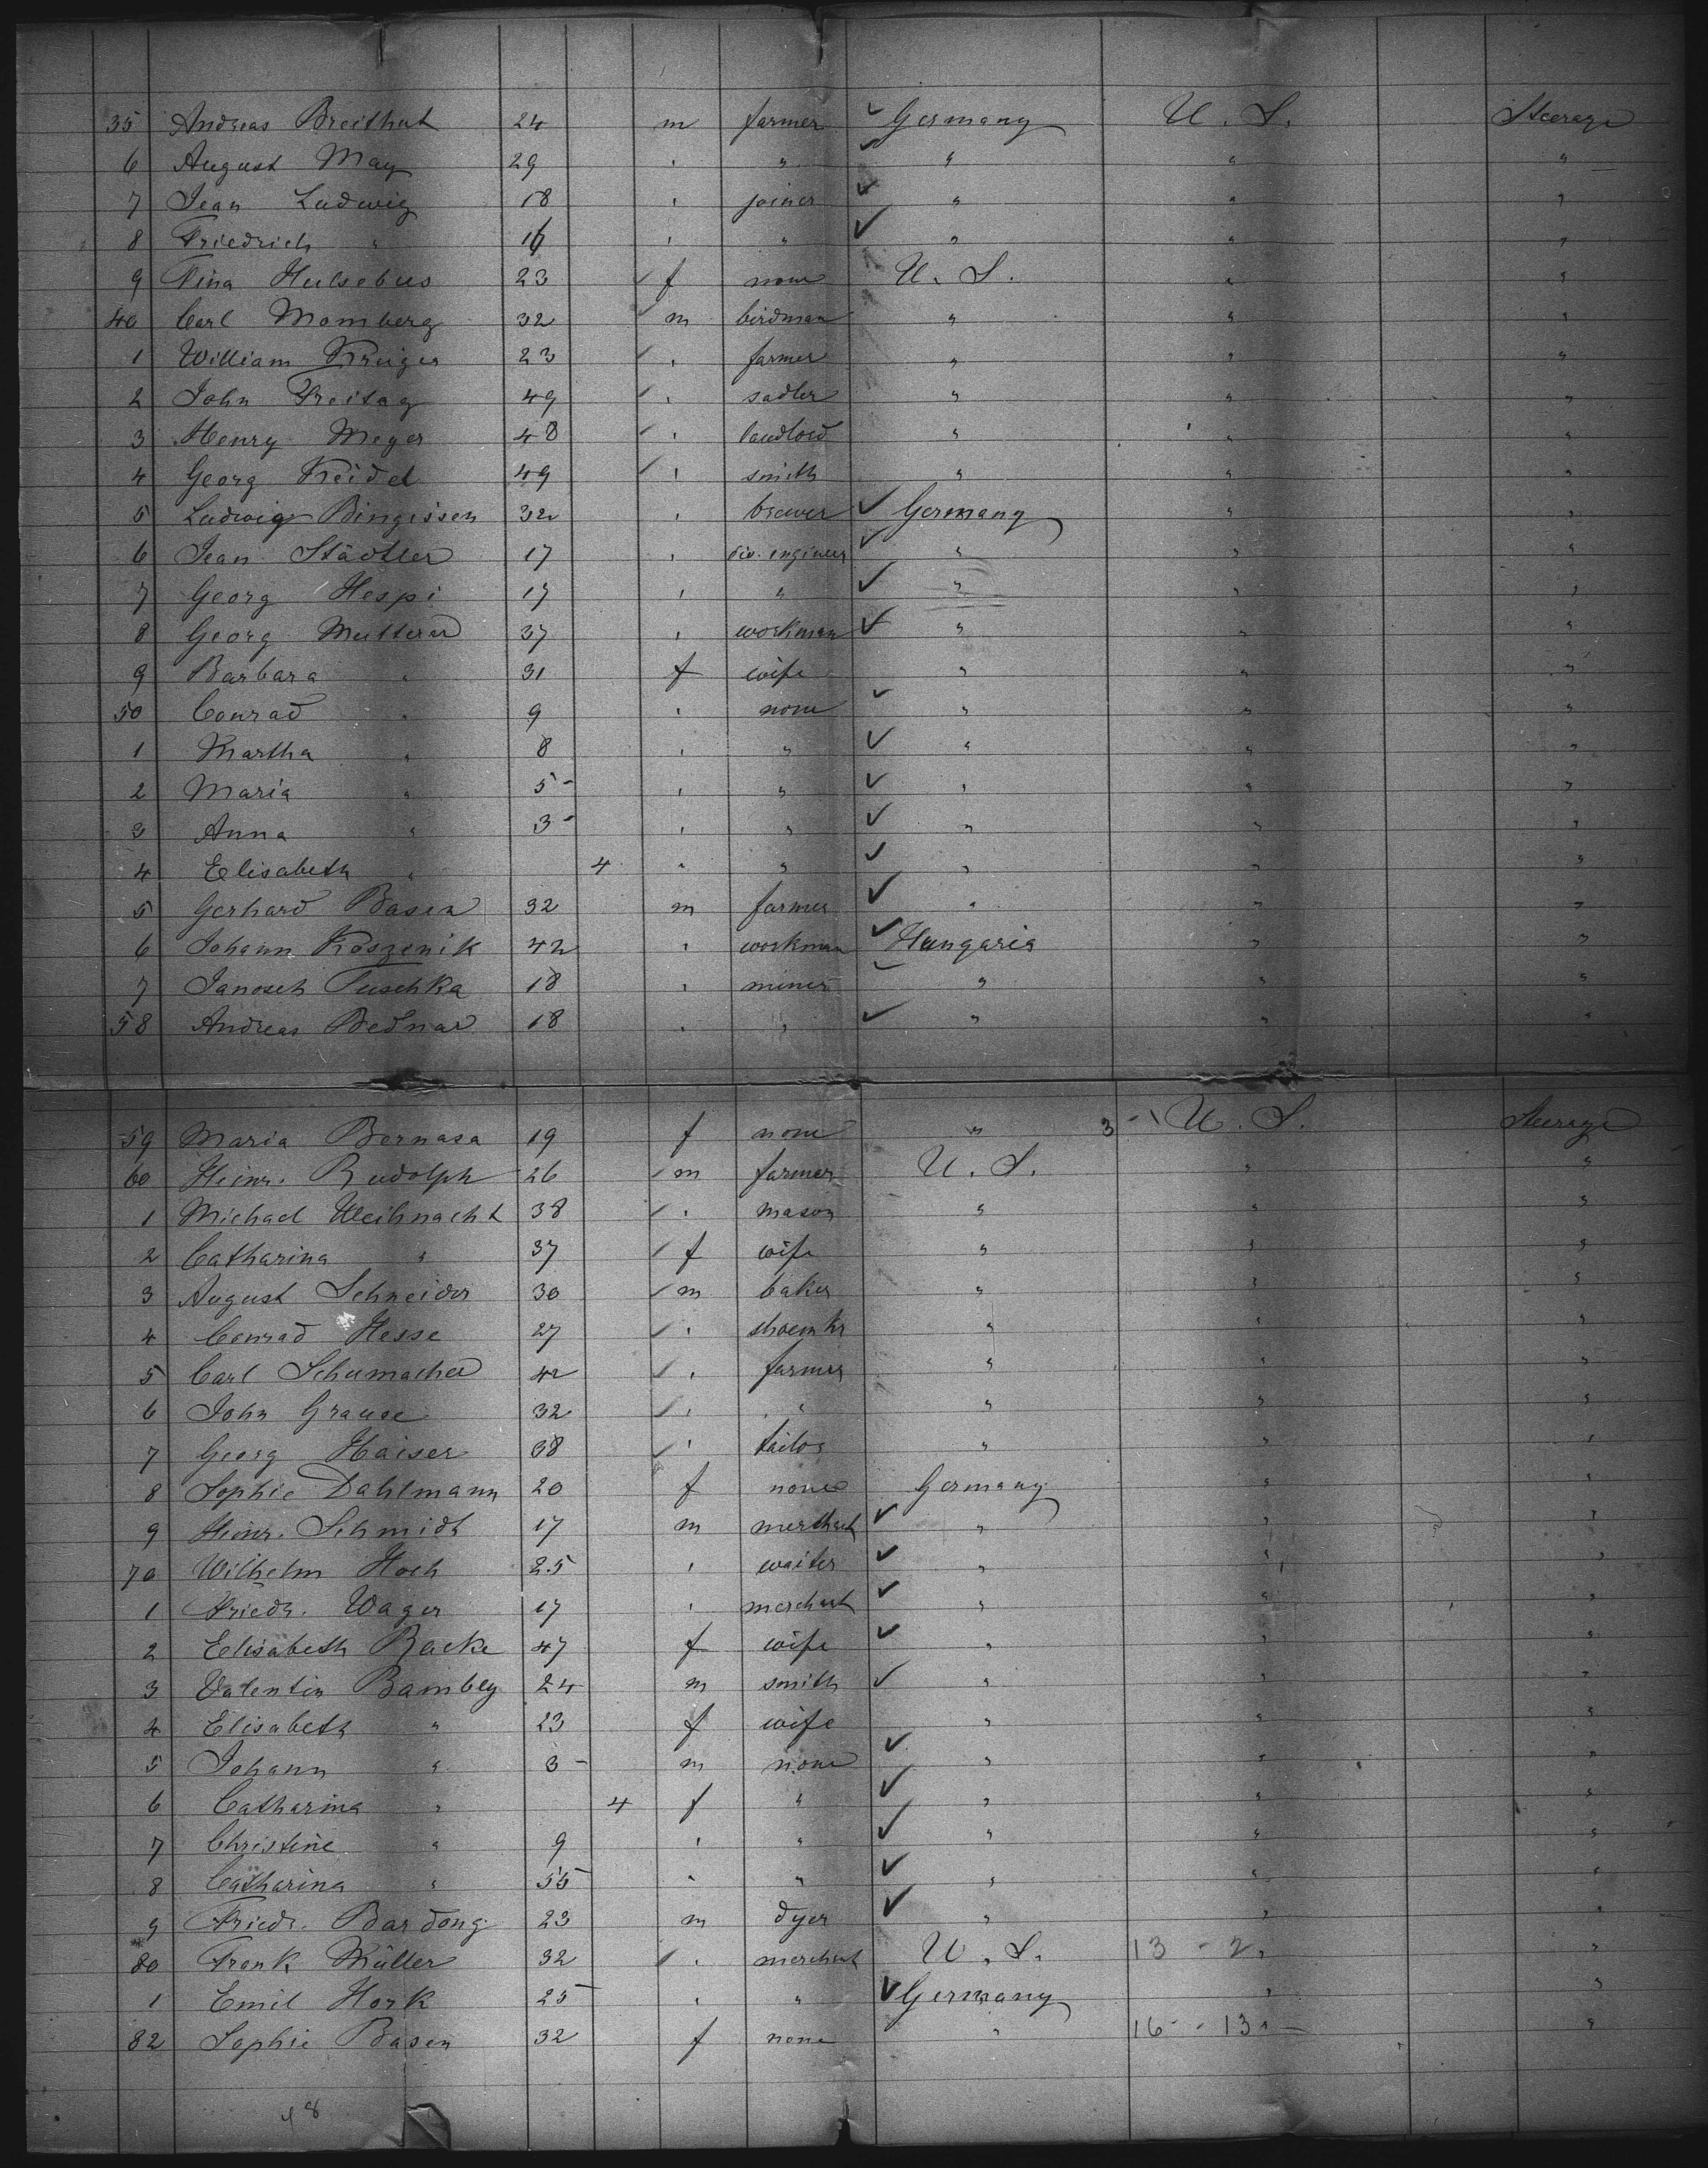 35 Andreas Breithut 24 m farmer ✓ Germany U. S. Steerage
6 August May 29 " " ✓ " " "
7 Jean Ludwig 18 " joiner ✓ " " "
8 Friedrich " 16 " " ✓ " " "
9 Tina Hulsebus 23 f none U. S. " "
40 Carl Momberg 32 m birdman " " "
1 William Krüger 23 " farmer " " "
2 John Freitag 49 " sadler " " "
3 Henry Meyer 48 " landlord " " "
4 Georg Keidel 49 " smith " " "
5 Ludwig 32 " brewer ✓ Germany " "
6 Jean Städtler 17 " civ. engineer ✓ " " "
7 Georg Hespi 17 " " ✓ " " "
8 Georg Mutterer 37 " workman ✓ " " "
9 Barbara " 31 f wife " " "
50 Conrad " 9 " none ✓ " " "
1 Martha " 8 " " ✓ " " "
2 Maria " 5 - " " ✓ " " "
3 Anna " 3 - " " ✓ " " "
4 Elisabeth " 4 " " ✓ " " "
5 Gerhard Basen 32 m farmer ✓ " " "
6 Johann Koszenik 42 " workman ✓ Hungaria " "
7 Janosch Tuschka 18 " miner ✓ " " "
58 Andreas Bednar 18 " " ✓ " " "
59 Maria Bernasa 19 f none " 3 - \ U. S. Steerage
60 Heinr. Rudolph 26 m farmer U. S. " "
1 Michael Weihnacht 38 " mason " " "
2 Catharina " 37 f wife " " "
3 August Schneider 30 m baker " " "
4 Conrad Hesse 27 " shoemkr " " "
5 Carl Schumacher 42 " farmer " " "
6 John Grause 32 " " " " "
7 Georg Haiser 38 " tailor " " "
8 Sophie Dahlmann 20 f none Germany " "
9 Heinr. Schmidt 17 m merchant ✓ " " "
70 Wilhelm Hoch 25 " waiter ✓ " " "
1 Friedr. Wager 17 " merchant ✓ " " "
2 Elisabeth Racke 47 f wife ✓ " " "
3 Valentin Bambey 24 m smith ✓ " " "
4 Elisabeth " 23 f wife " " "
5 Johann " 3 - m none ✓ " " "
6 Catharina " 4 f " ✓ " " "
7 Christine " 9 " " ✓ " " "
8 Catharina " 55 " " ✓ " " "
9 Friedr. Bardong 23 m dyer ✓ " " "
80 Frank Müller 32 " merchant U. S. 13 - 2 " "
1 Emil Hork 25 " " ✓ Germany " "
82 Sophie Basen 32 f none " 16 - 13 " "
48